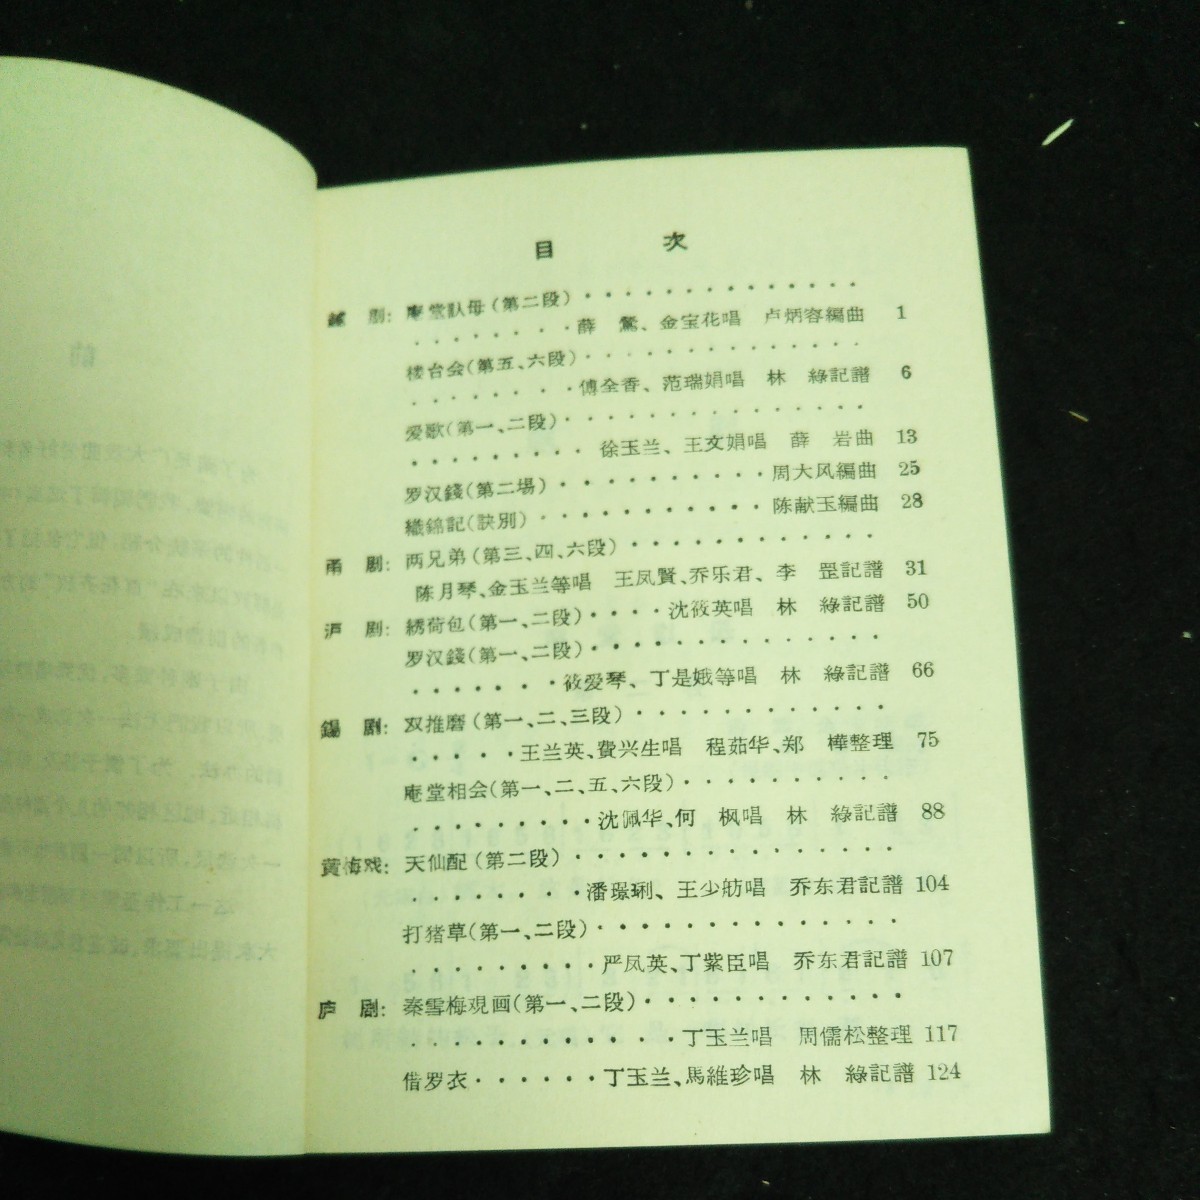 目 次
越 剧: 庵堂認母(第二段)··············
······薛 莺、金宝花唱 卢炳容編曲 1
楼台会(第五、六段)·············
········傅全香、范瑞娟唱 林 綠記譜 6
爱歌(第一、二段)··············
·········徐玉兰、王文娟唱 薛 岩曲 13
罗汉錢(第二場)··········周大风編曲 25
織錦記(訣別)···········陈献玉編曲 28
甬 剧: 两兄弟(第三、四、六段)············
陈月琴、金玉兰等唱 王凤賢、乔乐君、李 罡記譜 31
沪 剧: 綉荷包(第一、二段)····沈筱英唱 林 綠記譜 50
罗汉錢(第一、二段)·············
·······筱爱琴、丁是娥等唱 林 綠記譜 66
錫 剧: 双推磨(第一、二、三段)············
·····王兰英、費兴生唱 程茹华、郑 樺整理 75
庵堂相会(第一、二、五、六段)··········
·········沈佩华、何 枫唱 林 綠記譜 88
黄梅戏: 天仙配(第二段)···············
········潘璟琍、王少舫唱 乔东君記譜 104
打猪草(第一、二段)··············
·········严凤英、丁紫臣唱 乔东君記譜 107
庐 剧: 秦雪梅观画(第一、二段)············
·············丁玉兰唱 周儒松整理 117
借罗衣······丁玉兰、馬維珍唱 林 綠記譜 124